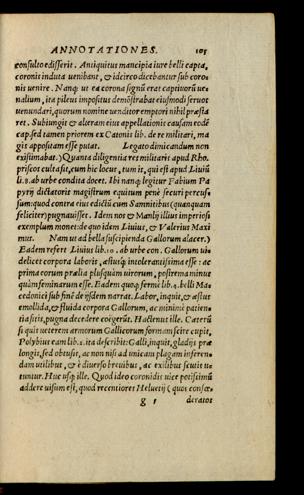 ANNOTATIONES. 105
consulto edisserit. Antiquitus mancipia iure belli capta,
coronis induta uenibant, & idcirco dicebantur sub coro-
nis uenire. Nanq; ut ea corona signũ erat captiuorũ ue-
nalium, ita pileus impositus demõstrabat eiusmodi seruos
uenundari, quorum nomine uenditor emptori nihil præsta
ret. Subiungit & alteram eius appellationis causam eodẽ
cap. sed tamen priorem ex Catonis lib. de re militari, ma
gis appositam esse putat. Legato dimicandum non
existimabat.) Quanta diligentia res militaris apud Rho.
priscos culta sit, cum hic locus, tum is, qui est apud Liuiũ
li. 8. ab urbe condita docet. Ibi nanq; legitur Fabium Pa
pyrij dictatoris magistrum equitum penè securi percus-
sum: quod contra eius edictũ cum Samnitibus (quanquam
feliciter) pugnauisset. Idem nos & Manlij illius imperiosi
exemplum monet: de quo idem Liuius, & Valerius Maxi
mus. Nam ut ad bella suscipienda Gallorum alacer.)
Eadem refert Liuius lib. 10. ab urbe con. Gallorum ui
delicet corpora laboris, æstusq; intolerantissima esse: ac
prima eorum prælia plusquàm uirorum, postrema minus
quàm fœminarum esse. Eadem quoq; fermè lib. 4. belli Ma
cedonici sub finẽ de ijsdem narrat. Labor, inquit, & æstus
emollida, & fluida corpora Gallorum, ac minimè patien-
tia sitis, pugna decedere coëgerũt. Hactenus ille. Cæterũ
si quis ueterem armorum Gallicorum formam scire cupit,
Polybius eam lib. 2. ita describit: Galli, inquit, gladijs præ
longis, sed obtusis, ac non nisi ad unicam plagam inferen-
dam utilibus, & è diuerso breuibus, ac exilibus scutis u-
tuntur. Huc usq; ille. Quod ideo coronidis uice potissimũ
addere uisum est, quod recentiores Heluetij (quos consœ-
g 1 deratos